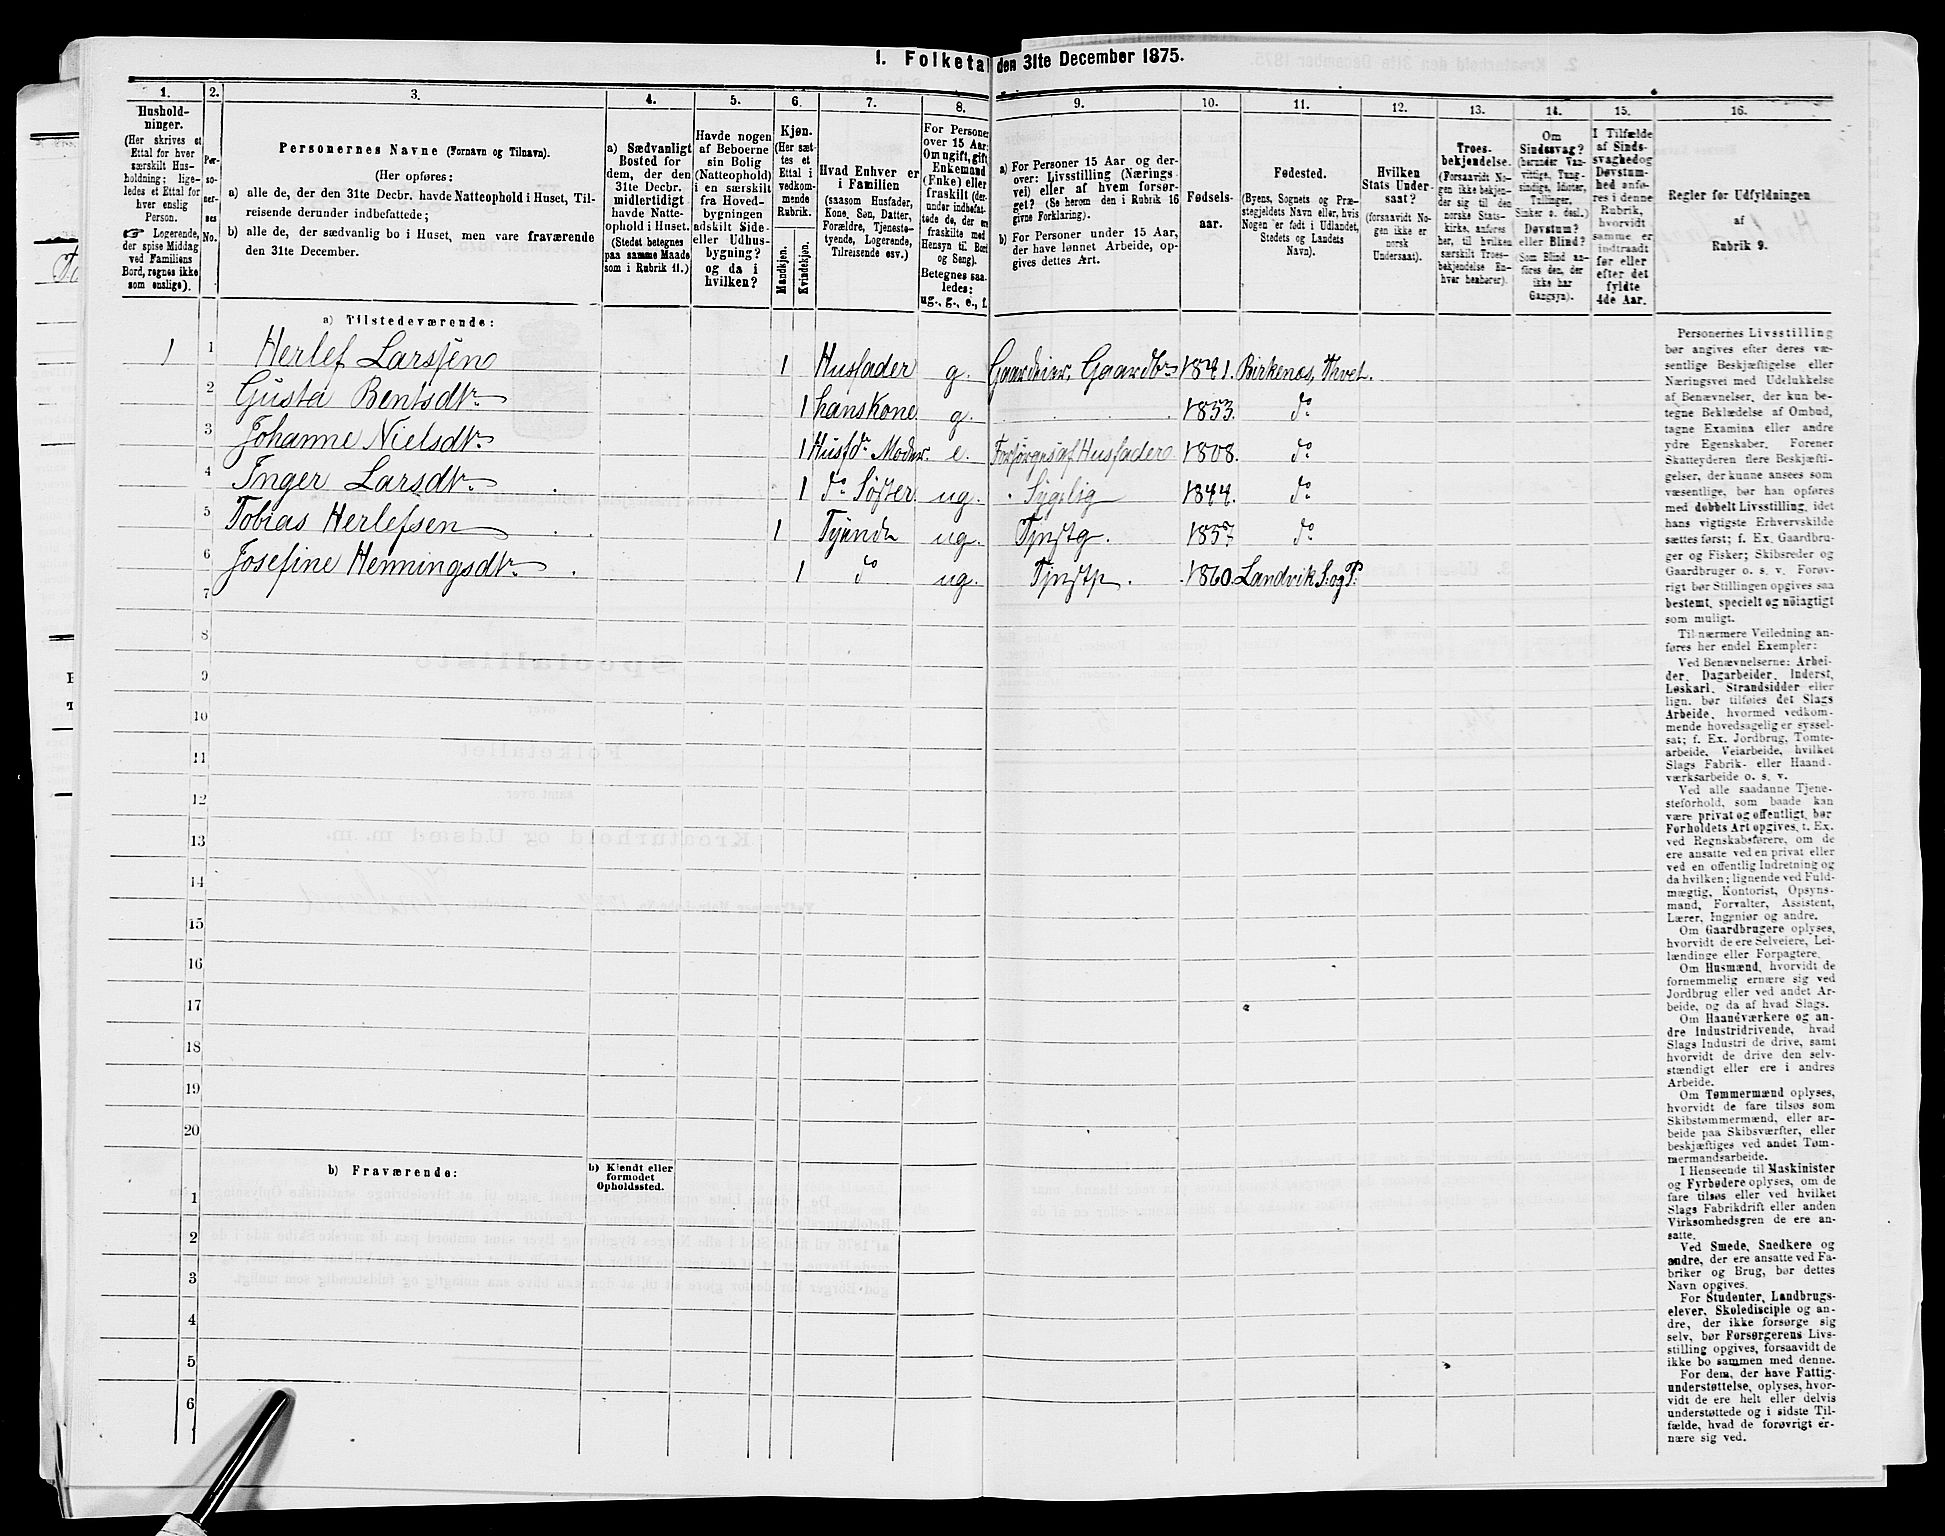 1. Folketal den 31te December 1875.
1. 2. 3. 4. 5. 6. 7. 8. 9. 10. 11. 12. 13. 14. 15. 16.
Hushold-
ninger.
(Her skrives et
Ettal for hver
særskilt Hus-
holdning; lige-
ledes et Ettal for
hver enslig
Person.
☞ Logerende,
der spise Middag
ved Familiens
Bord, regnes ikke
som enslige).
Per-
so-
ner-
nes
No.
Personernes Navne (Fornavn og Tilnavn).
(Her opføres:
a) alle de, der den 31te Decbr. havde Natteophold i Huset, Til-
reisende derunder indbefattede;
b) alle de, der sædvanlig bo i Huset, men vare fraværende
den 31te December.
a) Sædvanligt
Bosted for
dem, der den
31te Decbr.
midlertidigt
havde Natte-
ophold i Huset.
(Stedet betegnes
paa samme Maade
som i Rubrik 11.)
Havde nogen
af Beboerne
sin Bolig
(Natteophold)
i en særskilt
fra Hoved-
bygningen
adskilt Side-
eller Udhus-
bygning?
og da i
hvilken?
Kjøn.
(Her sæt-
tes et
Ettal i
vedkom-
mende
Rubrik.
Mandkjøn.
Kvindekjøn.
Hvad Enhver er
i Familien
(saasom Husfader,
Kone, Søn, Datter,
Forældre, Tjeneste-
tyende, Logerende,
Tilreisende osv.)
For Personer
over 15 Aar:
Om ugift, gift,
Enkemand
(Enke) eller
fraskilt (der-
under indbefat-
tede de, der ere
fraskilte med
Hensyn til Bord
og Seng).
Betegnes saa-
ledes:
ug., g., e., f.
a) For Personer 15 Aar og der-
over: Livsstilling (Nærings-
vei) eller af hvem forsør-
get? (Se herom den i Rubrik 16
givne Forklaring).
b) For Personer under 15 Aar,
der have lønnet Arbeide, op-
gives dettes Art.
Fødsels-
aar.
Fødested.
(Byens, Sognets og Præ-
stegjeldets Navn eller, hvis
Nogen er født i Udlandet,
Stedets og Landets
Navn).
Hvilken
Stats Under-
saat?
(forsaavidt No-
gen ikke er
norsk
Undersaat).
Troes-
bekjendelse.
(Forsaavidt No-
gen ikke bekjen-
der sig til den
norske Stats-
kirke, anføres
her, til hvilken
særskilt Troes-
bekjendelse En-
hver henhører).
Om
Sindssvag?
(herunder Van-
vittige, Tung-
sindige, Idioter,
Sinker o. desl.)
Døvstum?
eller Blind?
(Som Blind an-
føres den, der
ikke har
Gangsyn).
I Tilfælde
af Sinds-
svaghed og
Døvstum-
hed anfø-
res i denne
Rubrik,
hvorvidt
samme er
indtraadt
før eller
efter det
fyldte
4de Aar.
Regler for Udfyldningen
af
Rubrik 9.
a) Tilstedeværende:
1 1 Herlef Larssen 1 Husfader g. Gaardeier, Gaardbr 1841. Birkenæs, Thvet.
2 Gusta Bentsdtr. 1 hans Kone g. 1853. do
3 Johanne Nielsdtr. 1 Husfds Moder e. Forsørges af Husfader 1808. do
4 Inger Larsdtr. 1 do Søster ug. Sygelig 1844. do
5 Tobias Herlefsen 1 Tjenstg. 1857. do
6 Josefine Henningsdtr. 1 do ug. 1860. Landvik S. og P.
7
8
9
10
11
12
13
14
15
16
17
18
19
20
b) Fraværende:
b) Kjendt eller
formodet
Opholdssted.
1
2
3
4
5
6
Personernes Livsstilling
bør angives efter deres væ-
sentlige Beskjæftigelse eller
Næringsvei med Udelukkelse
af Benævnelser, der kun be-
tegne Beklædelse af Ombud,
tagne Examina eller andre
ydre Egenskaber. Forener
Skatteyderen flere Beskjæfti-
gelser, der kunne ansees som
væsentlige, bør han opføres
med dobbelt Livsstilling, idet
hans vigtigste Erhvervskilde
sættes først; f. Ex. Gaardbru-
ger og Fisker; Skibsreder og
Gaardbruger o. s. v. Forøv-
rigt bør Stillingen opgives saa
bestemt, specielt og nöiagtigt
som muligt.
Til nærmere Veiledning an-
føres her endel Exempler:
Ved Benævnelserne: Arbei-
der, Dagarbeider, Inderst,
Løskarl, Strandsidder eller
lign. bør tilføies det Slags
Arbeide, hvormed vedkom-
mende hovedsagelig er syssel-
sat; f. Ex. Jordbrug, Tomte-
arbeide, Veiarbeide, hvilket
Slags Fabrik- eller Haand-
værksarbeide o. s. v.
Ved alle saadanne Tjene-
steforhold, som baade kan
være privat og offentligt, bør
Forholdets Art opgives, t. Ex.
ved Regnskabsførere, om de
ere ansatte ved en privat eller
ved en offentlig Indretning og
da hvilken; lignende ved Fuld-
mægtig, Kontorist, Opsyns-
mand, Forvalter, Assistent,
Lærer, Ingeniør og andre.
Om Gaardbrugere oplyses,
hvorvidt de ere Selveiere, Lei-
lændinge eller Forpagtere.
Om Husmænd, hvorvidt de
fornemmelig ernære sig ved
Jordbrug eller ved andet Ar-
beide, og da af hvad Slags.
Om Haandværkere og an-
dre Industridrivende, hvad
Slags Industri de drive, samt
hvorvidt de drive den selv-
stændigt eller ere i andres
Arbeide.
Om Tømmermænd oplyses,
hvorvidt de fare tilsøs som
Skibstømmermænd, eller ar-
beide paa Skibsværfter, eller
beskjæftiges ved andet Tøm-
mermandsarbeide.
I Henseende til Maskinister
og Fyrbødere oplyses, om de
fare tilsøs eller ved hvilket
Slags Fabrikdrift eller anden
Virksomhedsgren de ere an-
satte.
Ved Smede, Snedkere og
andre, der ere ansatte ved Fa-
briker og Brug, bør dettes
Navn opgives.
For Studenter, Landbrugs-
elever, Skoledisciple og an-
dre, der ikke forsørge sig
selv, bør Forsørgerens Livs-
stilling opgives, forsaavidt de
ikke bo sammen med denne.
For dem, der have Fattig-
understøttelse, oplyses, hvor-
vidt de ere helt eller delvis
understøttede og i sidste Til-
fælde, hvad de forøvrigt er-
nære sig ved.